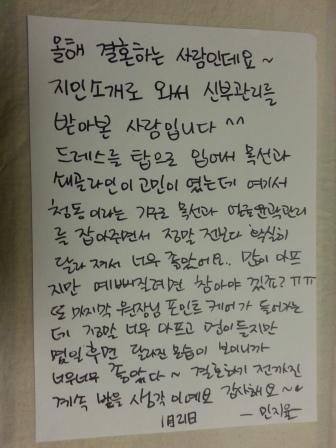 올해 결혼하는 사람인데요~
지인소개로 와서 신부관리를
받아본 사람입니다 ^^
드레스를 탑으로 입어서 목선과
쇄골라인이 고민이 였는데 여기서
청동이라는 기구로 목선과 얼굴윤곽관리
를 잡아주면서 정말 전보다 확실히
달라져서 너무 좋았어요.. 많이 아프
지만 예뻐질려면 참아야 겠죠? ㅠㅠ
또 마지막 원장님 포인트 케어가 들어가는
데 정말 너무 아프고 멍이들지만
몇일후면 달라진 모습이 보이니까
너무너무 좋았다~ 결혼하기 전까진
계속 받을 생각이예요 감사해요~
1월 21일 - 민지윤